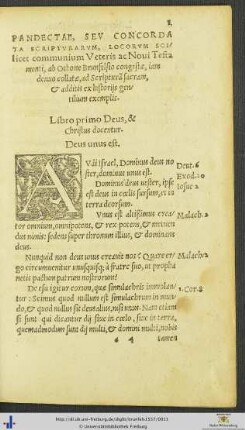 PANDECTAE, SEV CONCORDA
TA SCRIPTVRARVM, LOCORVM SCI
licet communium Veteris ac Noui Testa
menti, ab Othone Brunfelsio congestæ, iam
denuo collatæ, ad Scripturã sacram,
& additis ex historijs gen
tilium exemplis.
Libro primo Deus, &
Christus docentur.
Deus unus est.
AVdi Israel, Dominus deus no
ster, dominus unus est.
Deut. 6
Dominus deus uester, ipse
est deus in cœlis sursum, et in
terra deorsum.
Exod.
Iosue 2
Vnus est altissimus crea
Malach. 2
tor omnium, omnipotens, & rex potens, & metuen
dus nimis: sedens super thronum illius, & dominans
deus.
Nunquid non deus unus creauit nos? Quare er
Malach. 2
go circumuenitur unusquisq; à fratre suo, ut propha
netis pactum patrum nostrorum?
De esu igitur eorum, quæ simulachris immolan
1. Cor. 8
tur: Scimus quod nullum est simulachrum in mun
do, & quod nullus sit deus alius, nisi unus. Nam etiam
si sunt qui dicantur dij siue in cœlo, siue in terra,
quemadmodum sunt dij multi, & domini multi, nobis
a 4 tamen
© Universitätsbibliothek Freiburg